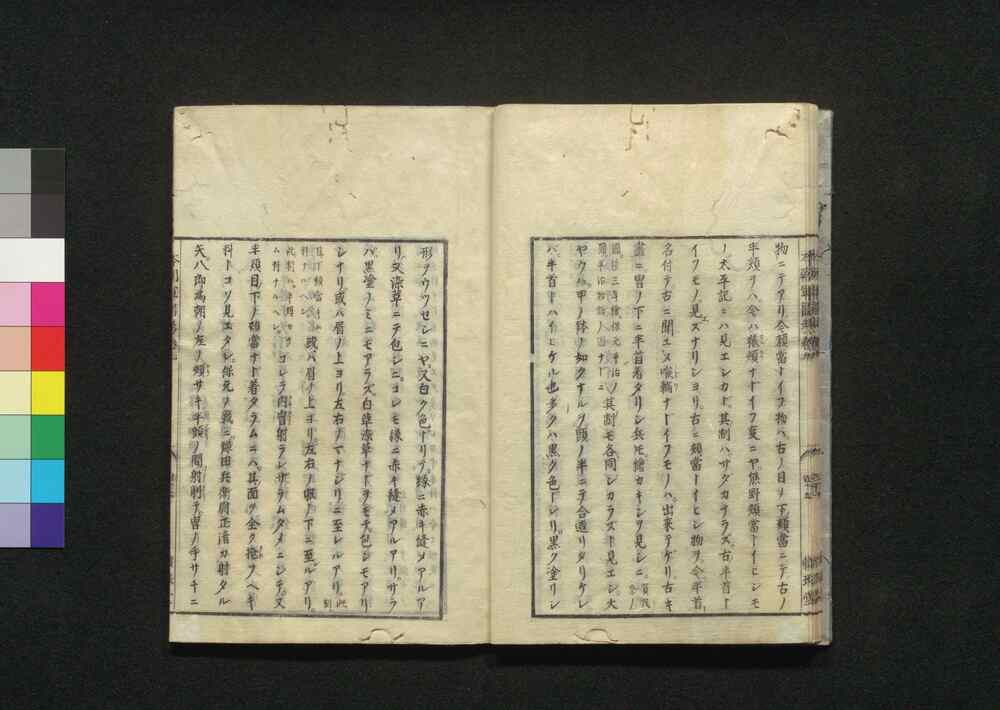 物ニテアリ今頬當トイフ物ハ古ノ目ノ下頬當ニテ古ノ
半頬ヲハ今ハ猿頬ナトイフ事ニヤ熊野頬當トイヒシモ
ノ太平記ニハ見エシカト其制ハサタカナラス古半首ト
イフモノ見エスナリシヨリ古ニ頬當トイヒシ物ヲ今半首
名付テ古ニ聞エヌ喉輪ナトイフモノハ出来テゲリ古キ
畫ニ冑ノ下ニ半首着タリシ兵モ繪カキシヲ見シニ
其制モ各同シカラスト見エシ大
ヤウハ甲ノ鉢ノ如クナルヲ頭ノ半ニテ合造リタリケレ
ハ半首トハイヒケル也多クハ黒ク色トリ黒ク塗リシ
形ヲウツセシニヤ又白ク色トリテ縁ニ赤キ縫メアルア
リ又染草ニテ色シニコレモ縁ニ赤キ縫メアルアリサラ
ハ黒塗ノミニモアラス白草染草ナトヲモテ色シモアリ
シナリ或ハ眉ノ上ヨリ左右ノマナジリニ至レルアリ
或ハ眉ノ上ヨリ左右ノ頬ノ下ニ至ルアリ
コレラ内冑射ラレサラムタメニシテ又
半頬目ノ下ノ頬當ナト着タラムニハ其面ヲ全ク掩フヘキ
料トコソ見エタレ保元ノ戰ニ鎌田兵衛尉正清カ射タル
矢八郎為朝ノ左ノ頬サキ半頭ノ間射削テ冑ノ手サキニ